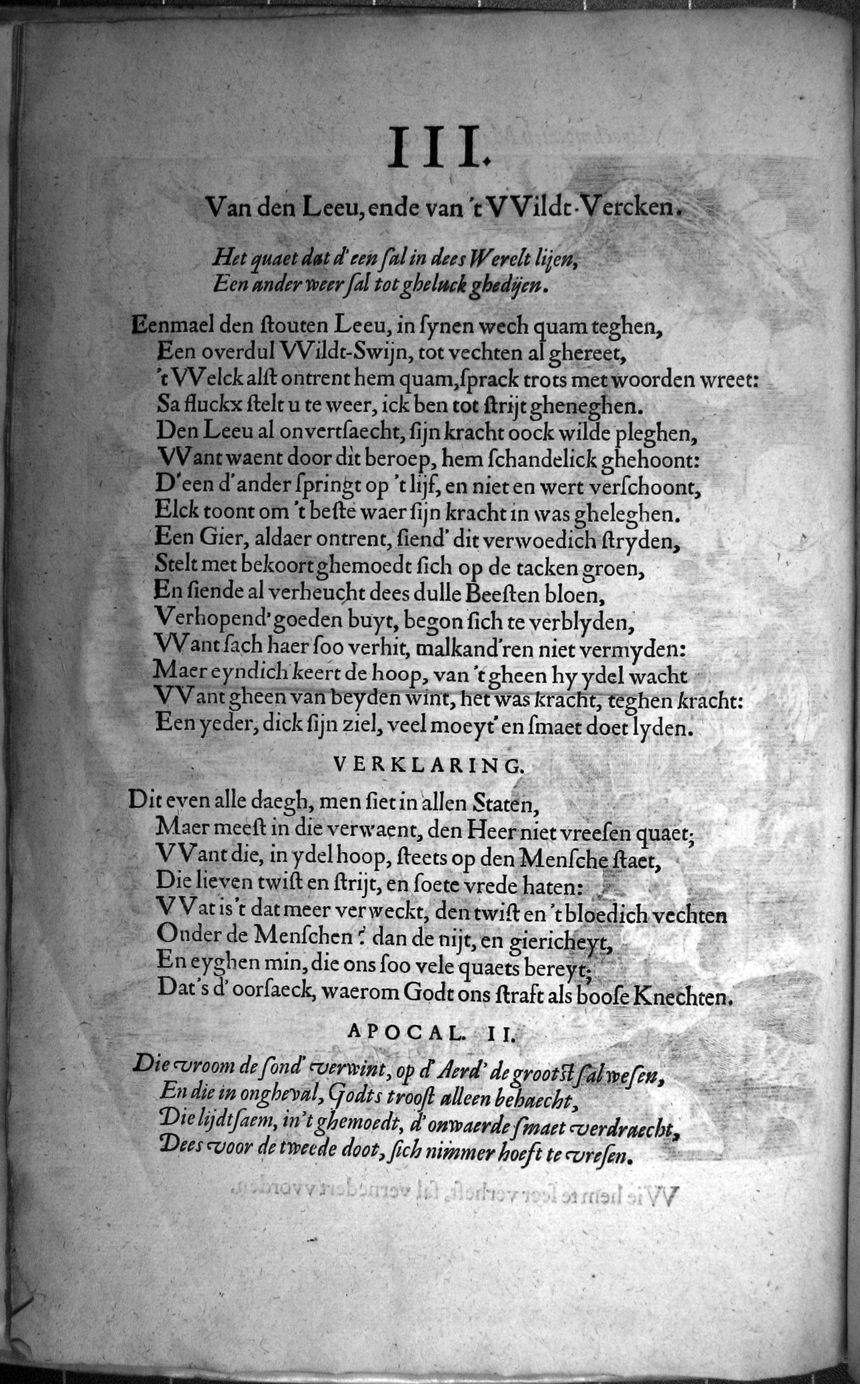 III.
Van den Leeu, ende van 't VVildt-Vercken.
Het quaet dat d'een ſal in dees Werelt lijen,
Een ander weer ſal tot gheluck ghedijen.
Eenmael den ſtouten Leeu, in ſynen wech quam teghen,
Een overdul VVildt-Swijn, tot vechten al ghereet,
't VVelck alſt ontrent hem quam, ſprack trots met woorden wreet:
Sa fluckx ſtelt u te weer, ick ben tot ſtrijt gheneghen.
Den Leeu al onvertſaecht, ſijn kracht oock wilde pleghen,
VVant waent door dit beroep, hem ſchandelick ghehoont:
D'een d'ander ſpringt op 't lijf, en niet en wert verſchoont,
Elck toont om 't beſte waer ſijn kracht in was gheleghen.
Een Gier, aldaer ontrent, ſiend' dit verwoedich ſtryden,
Stelt met bekoort ghemoedt ſich op de tacken groen,
En ſiende al verheucht dees dulle Beeſten bloen,
Verhopend' goeden buyt, begon ſich te verblyden,
VVant ſach haer ſoo verhit, malkand'ren niet vermyden:
Maer eyndich keert de hoop, van 't gheen hy ydel wacht
VVant gheen van beyden wint, het was kracht, teghen kracht:
Een yeder, dick ſijn ziel, veel moeyt' en ſmaet doet lyden.
VERKLARING.
Dit even alle daegh, men ſiet in allen Staten,
Maer meeſt in die verwaent, den Heer niet vreeſen quaet;
VVant die, in ydel hoop, ſteets op den Menſche ſtaet,
Die lieven twiſt en ſtrijt, en ſoete vrede haten:
VVat is't dat meer verweckt, den twiſt en 't bloedich vechten
Onder de Menſchen? dan de nijt, en giericheyt,
En eyghen min, die ons ſoo vele quaets bereyt;
Dat's d'oorſaeck, waerom Godt ons ſtraft als booſe Knechten.
APOCAL. II.
Die vroom de ſond' verwint, op d'Aerd' de grootſt ſal weſen,
En die in ongheval, Godts trooſt alleen behaecht,
Die lijdtſaem, in't ghemoedt, d'onwaerde ſmaet verdraecht,
Dees voor de tweede doot, ſich nimmer hoeft te vreſen.
VVie hem te ſeer verheft, ſal vernedert vvorden.